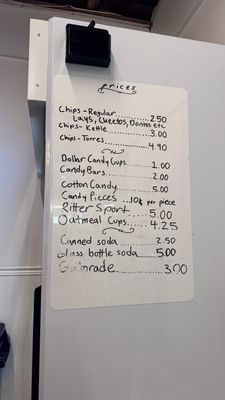 prices
Chips-Regular ........ 2.50
Lays, Cheetos, Doritos etc
Chips-Kettle ........ 3.00
Chips-Torres ........ 4.90
Dollar Candy Cups ........ 1.00
Candy Bars ........ 2.00
Cotton Candy ........ 5.00
Candy Pieces ...10¢ per piece
Ritter Sport ........ 5.00
Oatmeal Cups ...... 4.25
Canned soda ........ 2.50
Glass bottle soda ...... 5.00
Gatorade ........ 3.00